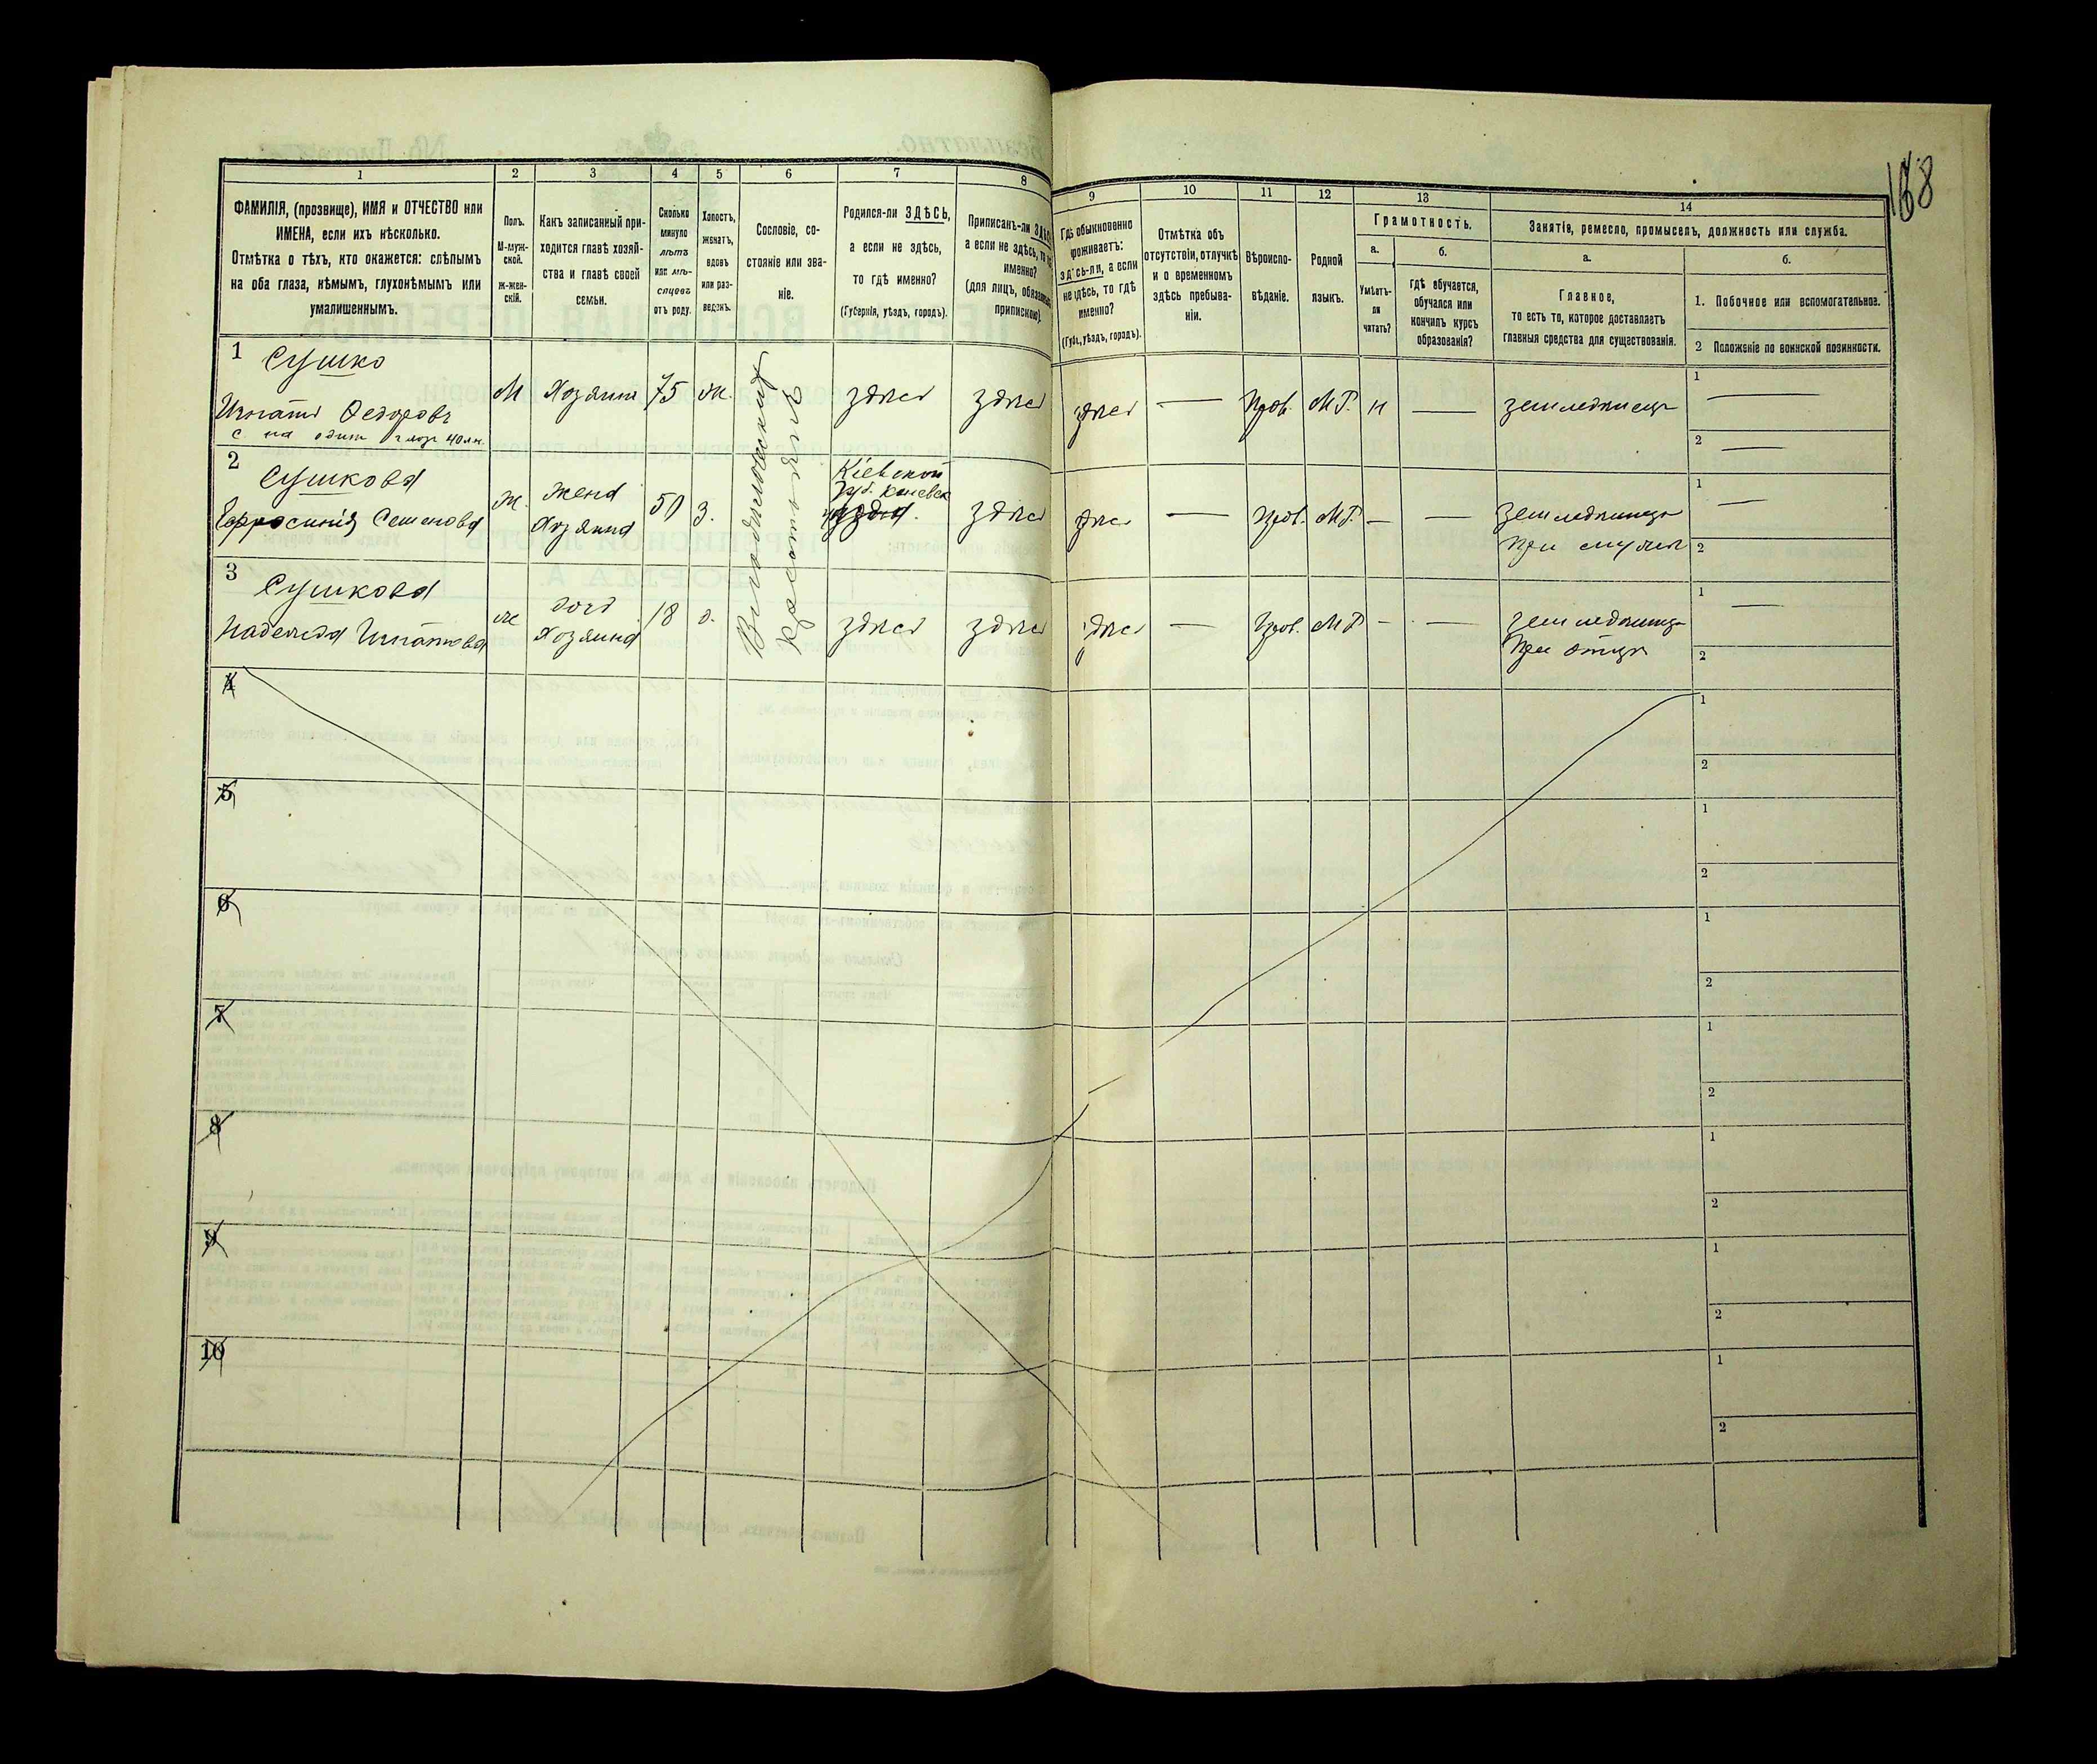 168
1
2
3
4
5
6
7
8
9
10
11
12
13
14
ФАМИЛІЯ, (прозвище), ИМЯ и ОТЧЕСТВО или
ИМЕНА, если ихъ нѣсколько.
Отмѣтка о тѣхъ, кто окажется: слѣпымъ
на оба глаза, нѣмымъ, глухонѣмымъ или
умалишеннымъ.
Полъ.
М-муж-
ской.
Ж-жен-
скій.
Какъ записанный при-
ходится главѣ хозяй-
ства и главѣ своей
семьи.
Сколько
минуло
лѣтъ
или мѣ-
сяцевъ
отъ роду.
Холостъ,
женатъ,
вдовъ
или раз-
веденъ.
Сословіе, со-
стояніе или зва-
ніе.
Родился-ли ЗДѢСЬ,
а если не здѣсь,
то гдѣ именно?
(Губернія, уѣздъ, городъ).
Приписанъ-ли
а если не здѣсь,
именно?
(для лицъ,
припискою).
Гдѣ обыкновенно
проживаетъ:
здѣсь-ли, а если
не здѣсь, то гдѣ
именно?
(Губ., уѣздъ, городъ).
Отмѣтка объ
отсутствіи, отлучкѣ
и о временномъ
здѣсь пребыва-
ніи.
Вѣроиспо-
вѣданіе.
Родной
языкъ.
Грамотность.
а.
Умѣетъ-
ли
читать?
б.
гдѣ обучается,
обучался или
кончилъ курсъ
образованія?
Занятіе, ремесло, промыселъ, должность или служба.
а.
Главное,
то есть то, которое доставляетъ
главныя средства для существованія.
б.
1. Побочное или вспомогательное.
2 Положеніе по воинской повинности.
1 Сушко
Игнатъ Федоровъ
М Хозяинъ 75 ж. здѣсь здѣсь здѣсь — Прав. М.Р. н — земледѣлецъ
1 —
2 —
2 Сушкова
Ефросинія Семенова
ж. жена
Хозяина
50 з.
Кіевской
губ.
уѣзда.
здѣсь здѣсь — Прав. М.Р. — — земледѣлица
При мужѣ
1 —
2
3 Сушкова
Надежда Игнатова
ж дочь
Хозяина
18 д. здѣсь здѣсь здѣсь — Прав. М.Р. — — земледѣлица
При отцѣ
1 —
2
Крестьяне
4
1
2
5
1
2
6
1
2
7
1
2
8
1
2
9
1
2
10
1
2